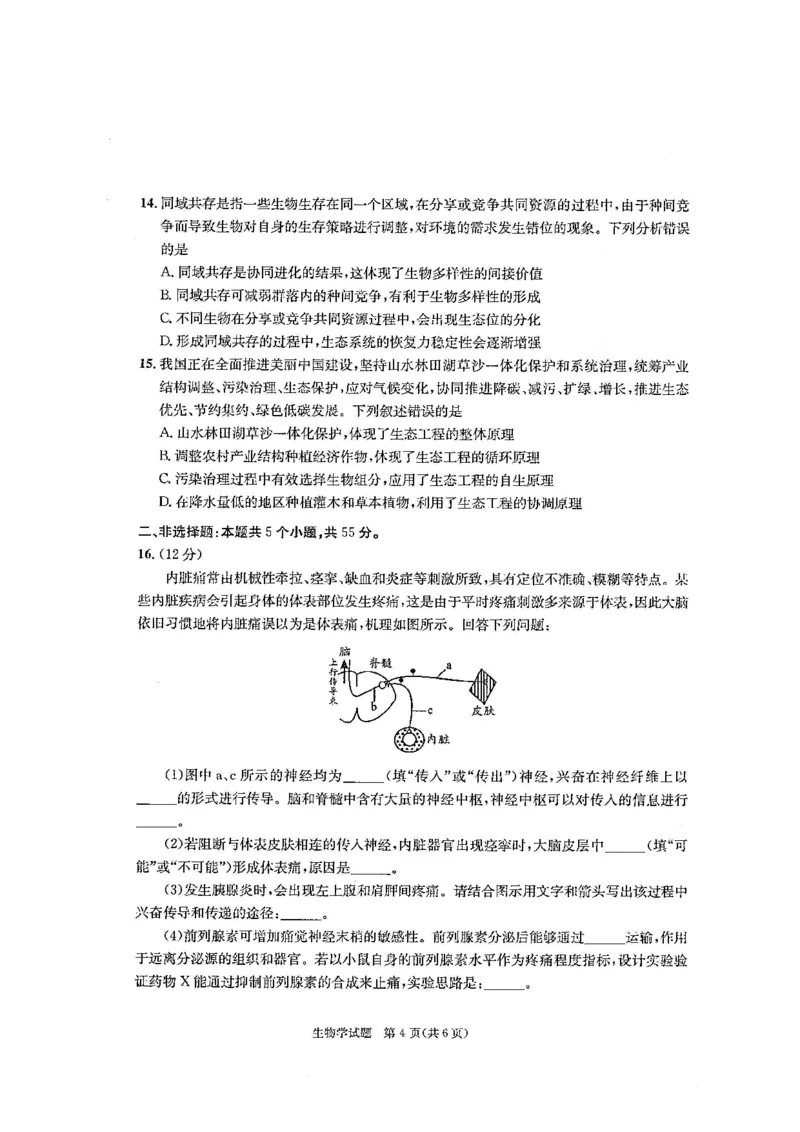 14. 同域共存是指一些生物生存在同一个区域,在分享或竞争共同资源的过程中,由于种间竞
争而导致生物对自身的生存策略进行调整,对环境的需求发生错位的现象。下列分析错误
的是
A. 同域共存是协同进化的结果,这体现了生物多样性的间接价值
B. 同域共存可减弱群落内的种间竞争,有利于生物多样性的形成
C. 不同生物在分享或竞争共同资源过程中,会出现生态位的分化
D. 形成同域共存的过程中,生态系统的恢复力稳定性会逐渐增强
15. 我国正在全面推进美丽中国建设,坚持山水林田湖草沙一体化保护和系统治理,统筹产业
结构调整、污染治理、生态保护,应对气候变化,协同推进降碳、减污、扩绿、增长,推进生态
优先、节约集约、绿色低碳发展。下列叙述错误的是
A. 山水林田湖草沙一体化保护,体现了生态工程的整体原理
B. 调整农村产业结构种植经济作物,体现了生态工程的循环原理
C. 污染治理过程中有效选择生物组分,应用了生态工程的自生原理
D. 在降水量低的地区种植灌木和草本植物,利用了生态工程的协调原理
二、非选择题:本题共5个小题,共55分。
16. (12分)
内脏痛常由机械性牵拉、痉挛、缺血和炎症等刺激所致,具有定位不准确、模糊等特点。某
些内脏疾病会引起身体的体表部位发生疼痛,这是由于平时疼痛刺激多来源于体表,因此大脑
依旧习惯地将内脏痛误以为是体表痛,机理如图所示。回答下列问题:
脑
上行传导束
脊髓
a
b
c
皮肤
内脏
(1)图中a、c所示的神经均为_____(填“传入”或“传出”)神经,兴奋在神经纤维上以
_____的形式进行传导。脑和脊髓中含有大量的神经中枢,神经中枢可以对传入的信息进行
_____。
(2)若阻断与体表皮肤相连的传入神经,内脏器官出现痉挛时,大脑皮层中_____(填“可
能”或“不可能”)形成体表痛,原因是_____。
(3)发生胰腺炎时,会出现左上腹和肩胛间疼痛。请结合图示用文字和箭头写出该过程中
兴奋传导和传递的途径:_____。
(4)前列腺素可增加痛觉神经末梢的敏感性。前列腺素分泌后能够通过_____运输,作用
于远离分泌源的组织和器官。若以小鼠自身的前列腺素水平作为疼痛程度指标,设计实验验
证药物X能通过抑制前列腺素的合成来止痛,实验思路是:_____。
生物学试题 第4页(共6页)